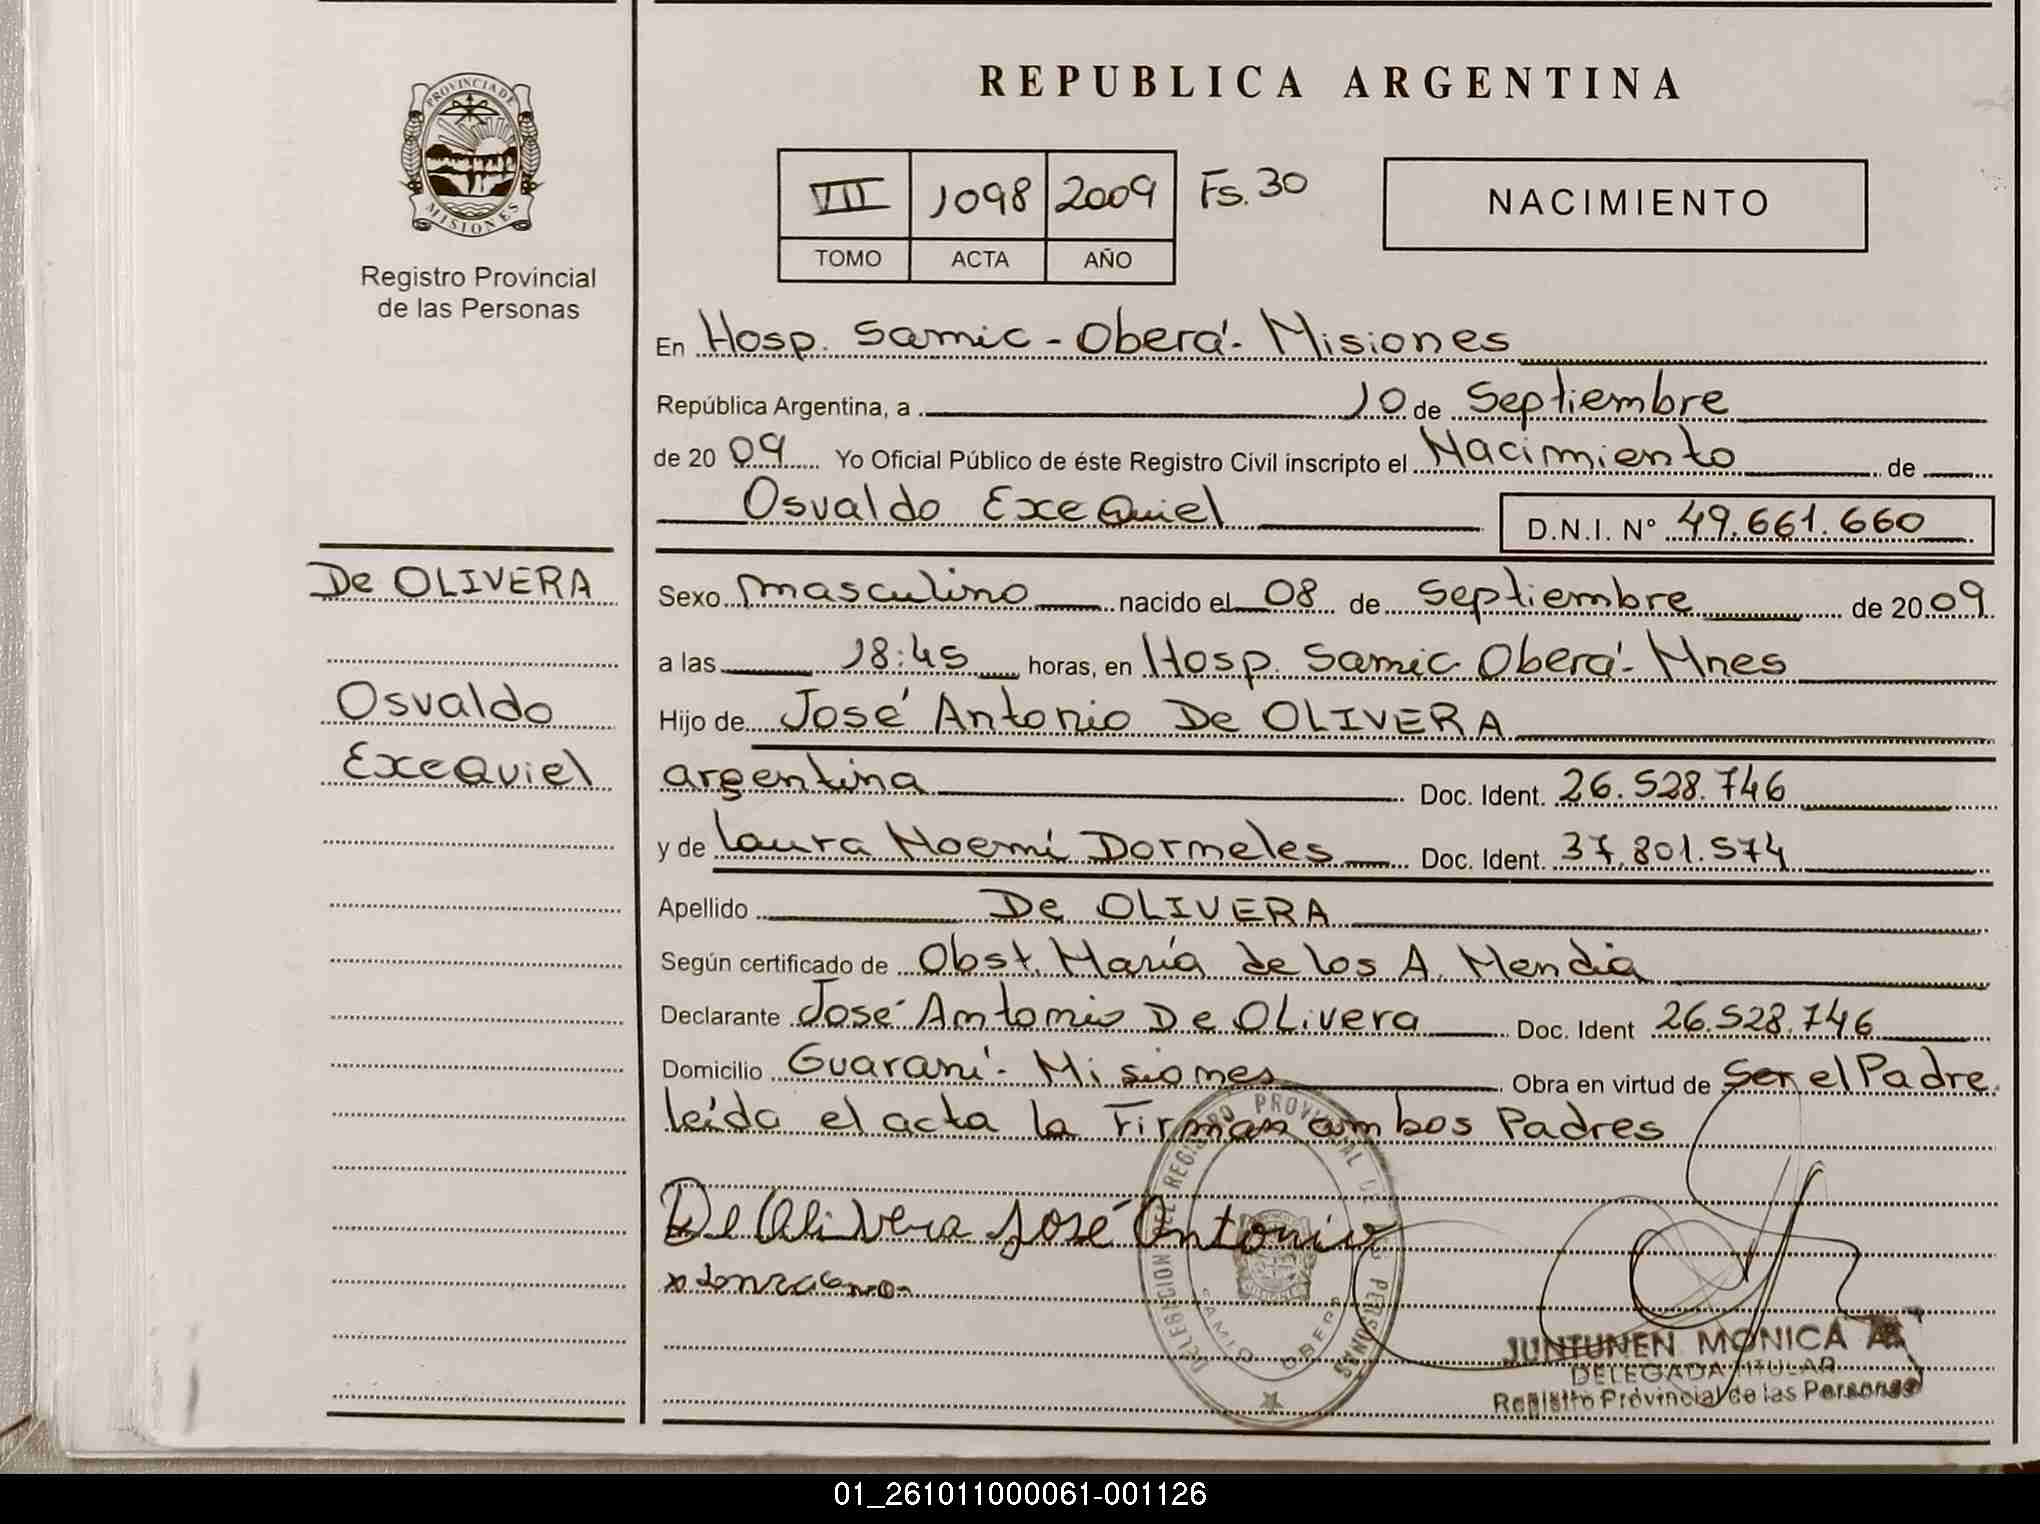 REPUBLICA ARGENTINA
PROVINCIA DE MISIONES
Registro Provincial
de las Personas
VII 1098 2009 Fs. 30
TOMO ACTA AÑO
NACIMIENTO
En Hosp. Samic - Oberá - Misiones
República Argentina, a 10 de Septiembre
de 2009 Yo Oficial Público de éste Registro Civil inscripto el Nacimiento de
Osvaldo ExeQuiel D.N.I. N° 49.661.660
De OLIVERA
Osvaldo
ExeQuiel
Sexo masculino nacido el 08 de Septiembre de 2009
a las 18:45 horas, en Hosp. Samic Oberá - Mnes
Hijo de José Antonio De OLIVERA
argentina Doc. Ident. 26.528.746
y de Laura Noemí Dormeles Doc. Ident. 37.801.574
Apellido De OLIVERA
Según certificado de Obst. María de los A. Mendia
Declarante José Antonio De OLivera Doc. Ident 26.528.746
Domicilio Guaraní - Misiones Obra en virtud de Ser el Padre
leída el acta la Firman ambos Padres
De Olivera José Antonio
DELEGACION DEL REGISTRO PROVINCIAL DE LAS PERSONAS
OBERA
JUNTUNEN MONICA A.
DELEGADA TITULAR
Registro Provincial de las Personas
01_261011000061-001126